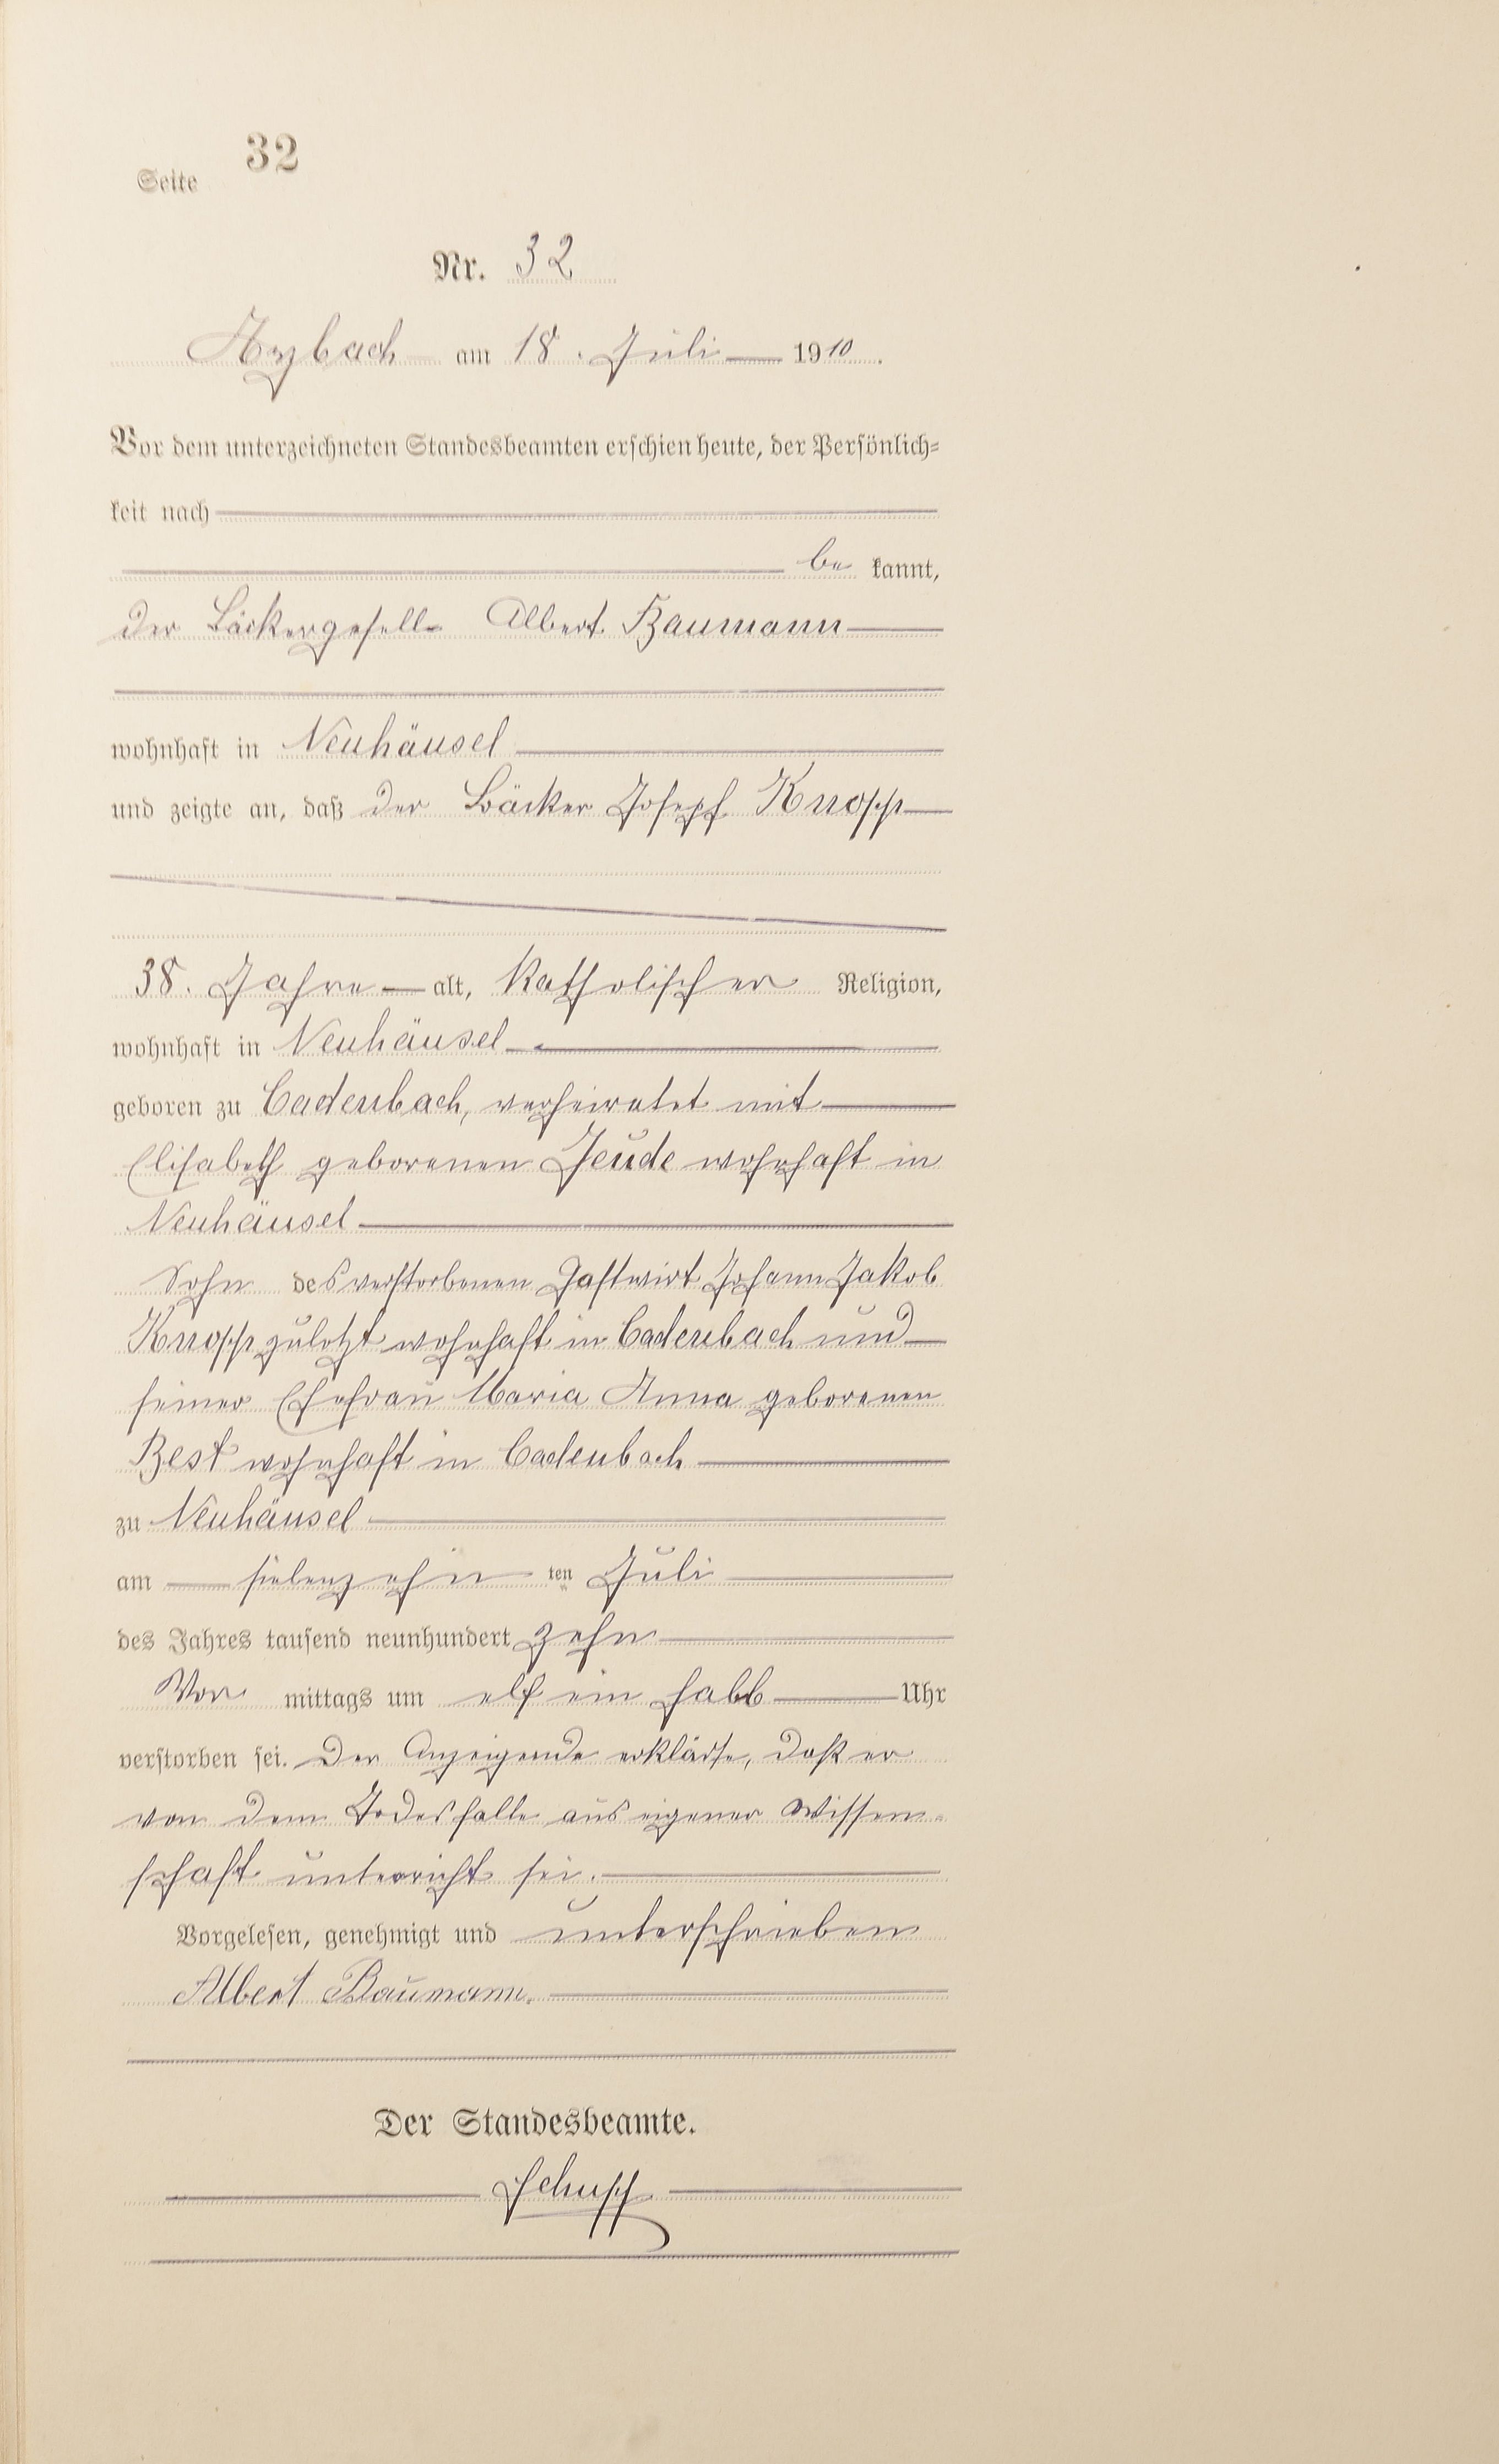 Seite 32
Nr. 32
Arzbach am 18. Juli 1910.
Vor dem unterzeichneten Standesbeamten erschien heute, der Persönlich-
keit nach
be kannt,
der Bäckergeselle Albert Baumann
wohnhaft in Neuhäusel
und zeigte an, daß der Bäcker Josepf Knopp
38. Jahre alt, katholischer Religion,
wohnhaft in Neuhäusel
geboren zu Cadenbach, verheiratet mit
Elisabeth geborenen Jeude wohnhaft in
Neuhäusel
Sohn des verstorbenen Gastwirt Johann Jakob
Knopp zuletzt wohnhaft in Cadenbach und
seiner Ehefrau Maria Anna geborenen
Best wohnhaft in Cadenbach
zu Neuhäusel
am siebenzehn ten Juli
des Jahres tausend neunhundert zehn
Vor mittags um elf ein halb Uhr
verstorben sei. Der Anzeigende erklärte, daß er
von dem Todesfalle aus eigener Wissen-
schaft unterricht sei.
Vorgelesen, genehmigt und unterschrieben
Albert Baumann.
Der Standesbeamte.
Schupp